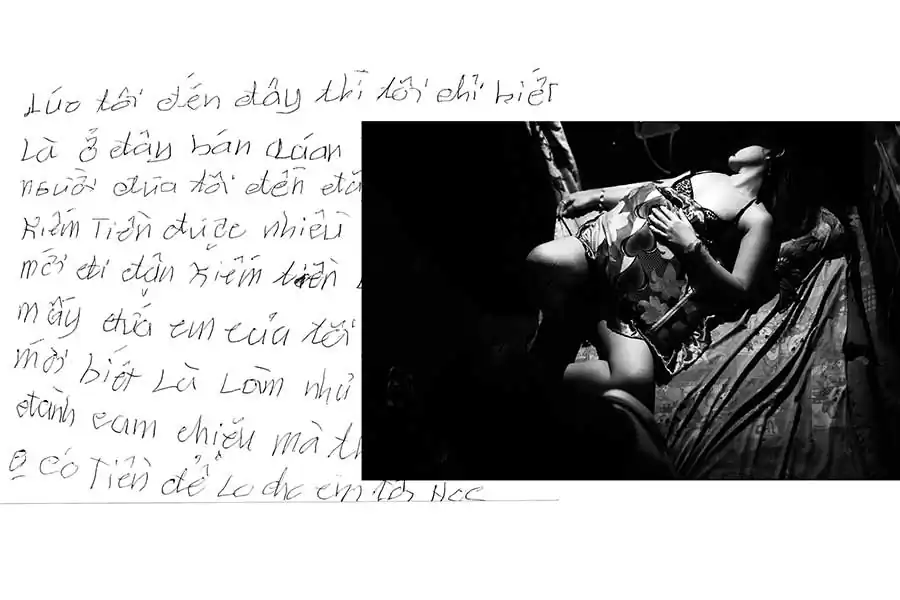 Lúc tôi đến đây thì tôi chỉ biết
Là ở đây bán quán
người đưa tôi đến
Kiếm Tiền được nhiều
mới đi kiếm tiền
mấy đứa em của tôi
mới biết Là Làm như
đành cam chiệu mà
có Tiền để Lo cho em tôi Học